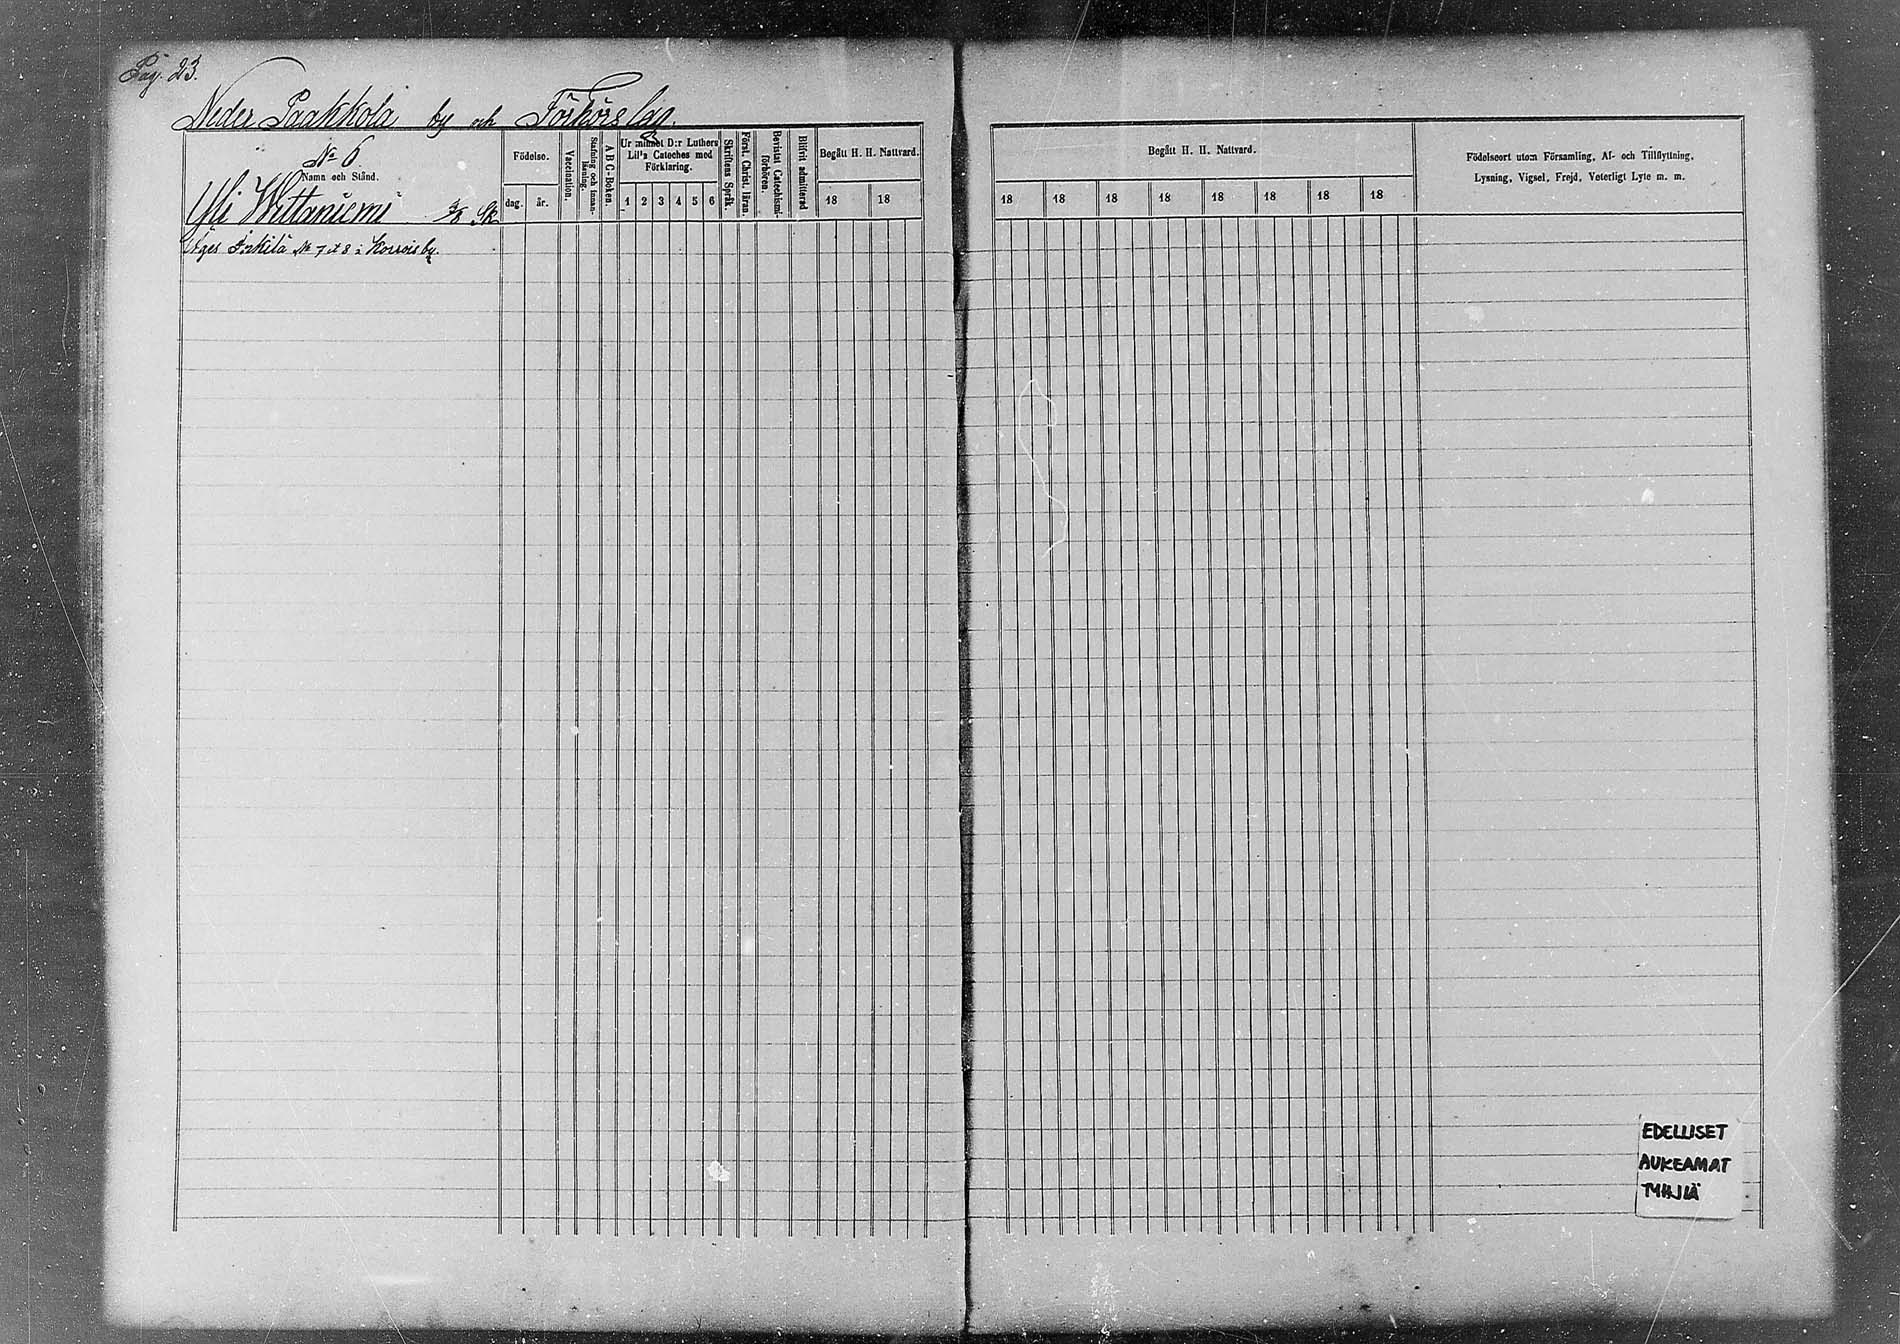 Pag. 23.
Neder Paakkola by och Förhörslag.
N:o 6.
Namn och Stånd.
Yli Wittaniemi
Äges Erkilä N:o 7 & 8 i Korvois by.
Födelse.
dag. år.
Vaccination.
Stafning och innan-
läsning.
A B C-Boken.
Ur minnet D:r Luthers
Lill'a Cateches med
Förklaring.
1 2 3 4 5 6
Skriftens Språk.
Först. Christ. läran.
Bevistat Catechismi-
förhören
Blifvit admitterad
Begått H. H. Nattvard.
18 18
Begått H. H. Nattvard.
18 18 18 18 18 18 18 18
Födelseort utom Församling, Af- och Tillflyttning,
Lysning, Vigsel, Frejd, Veterligt Lyte m. m.
EDELLISET
AUKEAMAT
TYHJIÄ